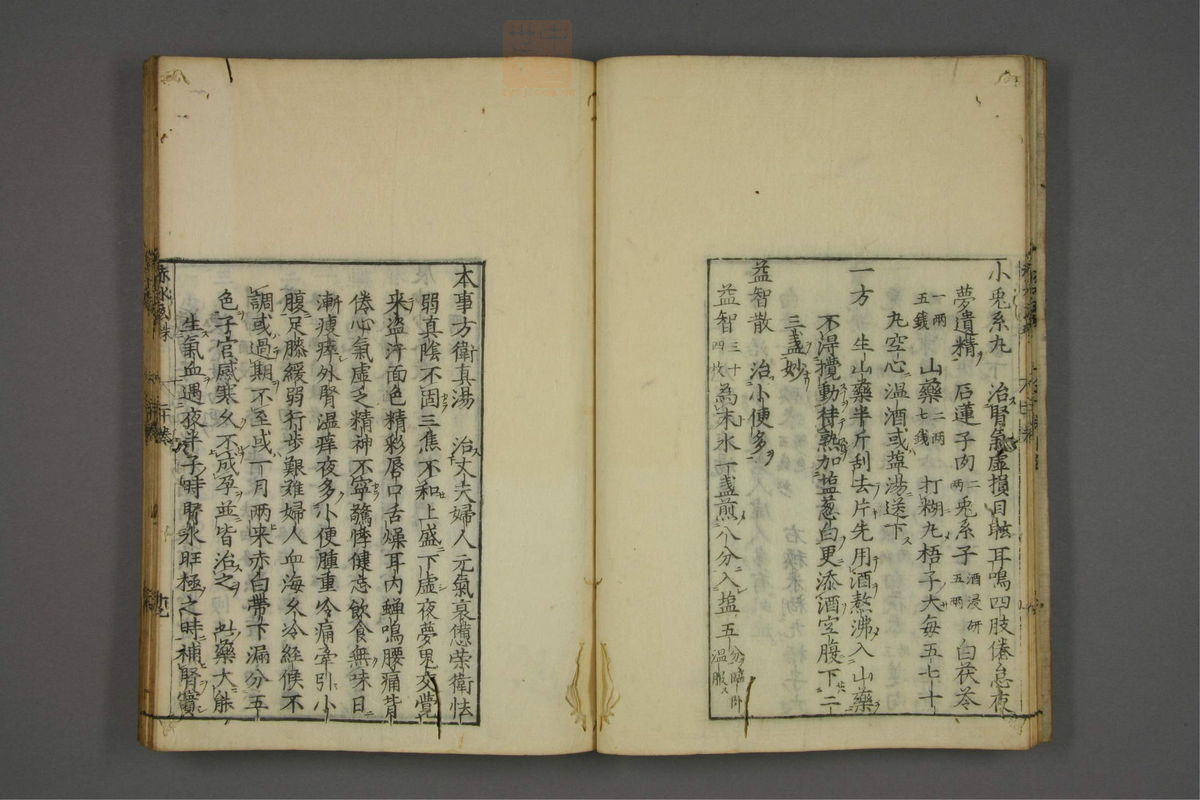 小兎糸丸　治腎氣虚損目眩耳鳴四肢倦怠夜
夢遺精　石蓮子肉二両　兎糸子五両酒浸研　白茯苓
一両五銭　山藥二両七銭　打糊丸梧子大毎五七十
丸空心温酒或塩湯送下
一方　生山藥半斤刮去片先用酒熬沸入山藥
不得攪動待熟加塩葱白更添酒空腹下二
三盞妙
益智散　治小便多
益智三十四枚　為末水一盞煎八分入塩五分臨卧温服
本事方衛真湯　治丈夫婦人元氣衰憊榮衛怯
弱真陰不固三焦不和上盛下虚夜夢鬼交覺
来盗汗面色精彩唇口舌燥耳内蝉鳴腰痛背
倦心氣虚乏精神不寧驚悸健忘飲食無味日
漸瘦瘁外腎温痒夜多小便腫重冷痛牽引小
腹足膝緩弱行歩艱難婦人血海久冷経候不
調或過期不至或一月両来赤白帶下漏分五
色子宮感寒久不成孕並皆治之　此藥大能
生氣血遇夜半子時腎水旺極之時補腎實
赤水玄珠